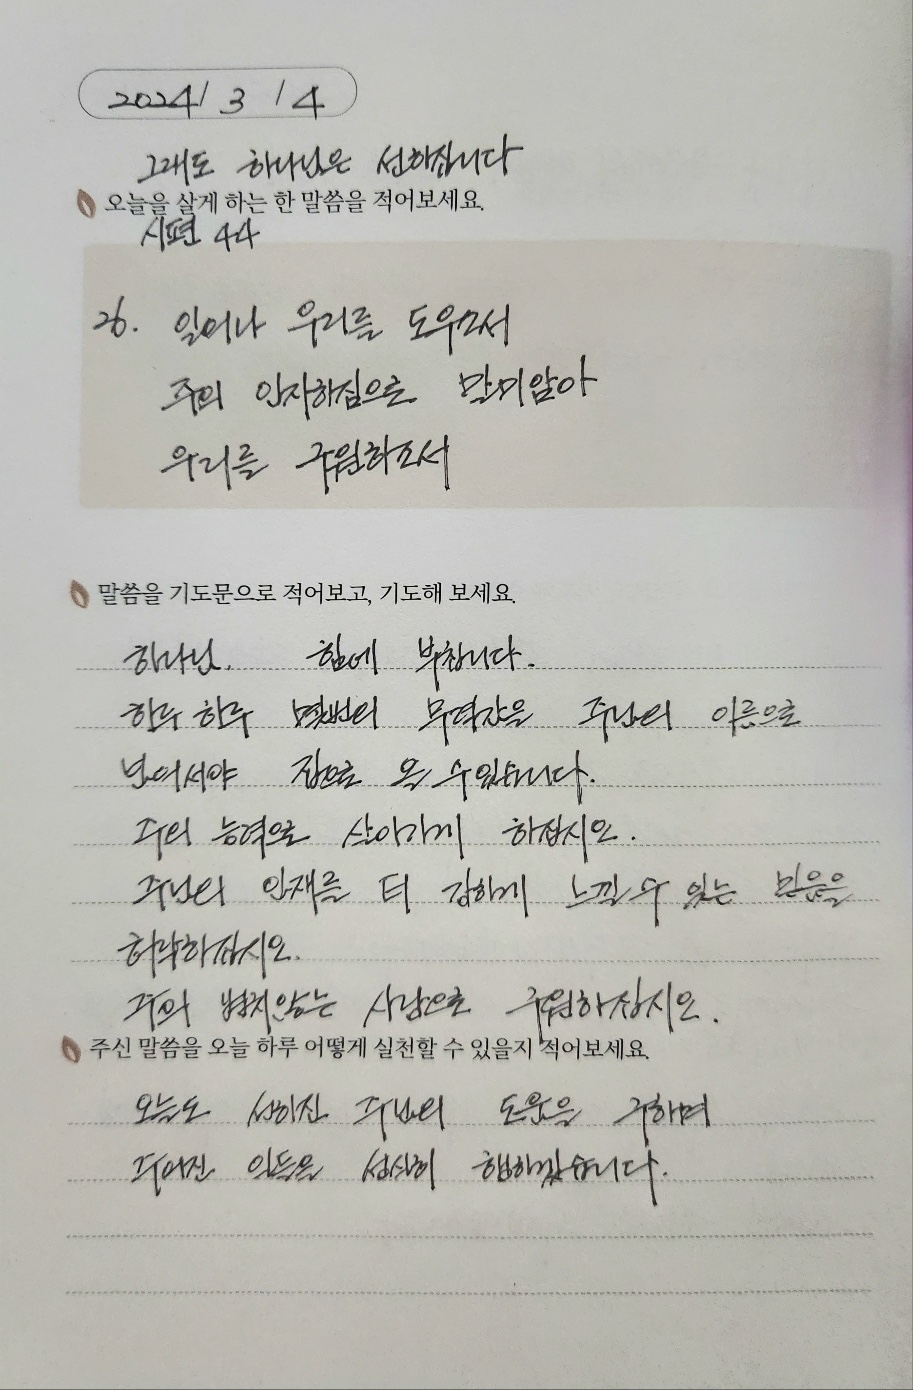 2024 / 3 / 4
그래도 하나님은 선하십니다
오늘을 살게 하는 한 말씀을 적어보세요.
시편 44
26. 일어나 우리를 도우소서
주의 인자하심으로 말미암아
우리를 구원하소서
말씀을 기도문으로 적어보고, 기도해 보세요.
하나님. 힘에 부칩니다.
하루 하루 몇번의 무력감을 주님의 이름으로
넘어서야 집으로 올 수 있습니다.
주의 능력으로 살아가게 하십시오.
주님의 임재를 더 강하게 느낄 수 있는 믿음을
허락하십시오.
주의 변치않는 사랑으로 구원하십시오.
주신 말씀을 오늘 하루 어떻게 실천할 수 있을지 적어보세요.
오늘도 선하신 주님의 도움을 구하며
주어진 일들을 성실히 행하겠습니다.